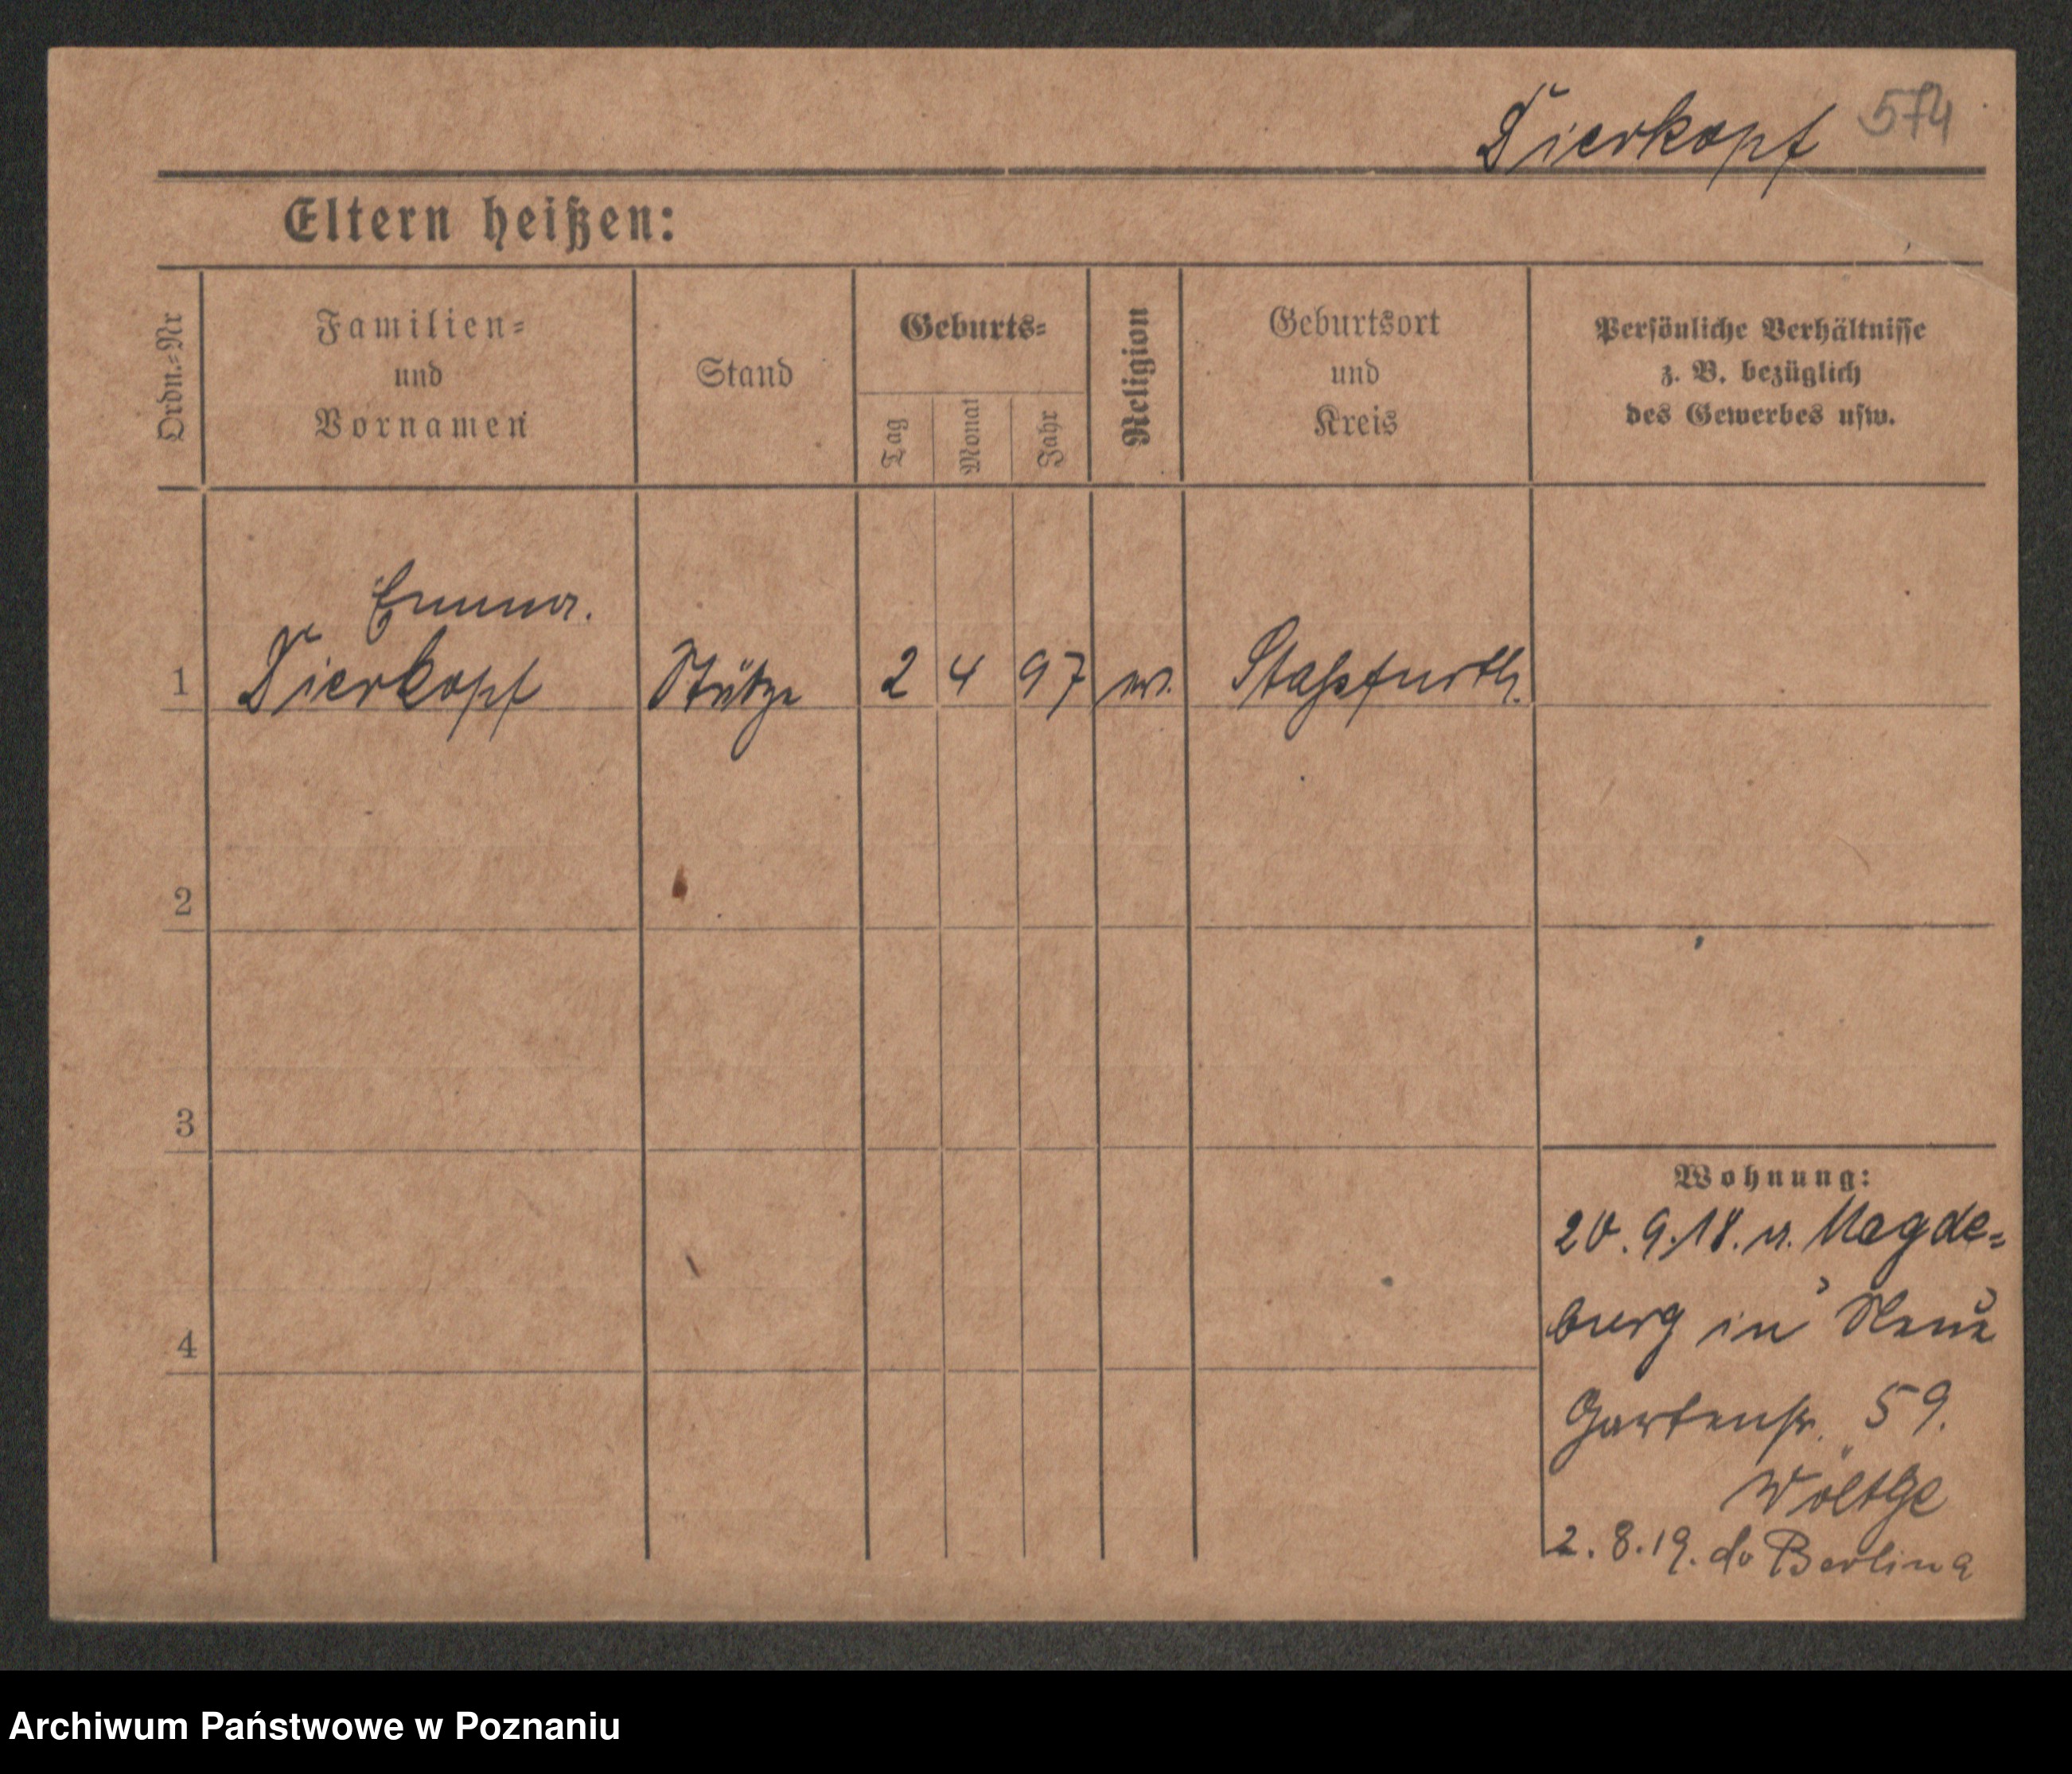 Dierkopf 574
Eltern heißen:
Ordn.=Nr
Familien=
und
Vornamen
Stand
Geburts=
Tag
Monat
Jahr
Religion
Geburtsort
und
Kreis
Persönliche Verhältnisse
z. B. bezüglich
des Gewerbes usw.
Emma.
1 Dierkopf Stütze 2 4 97 ev. Staßfurth.
2
3
4
Wohnung:
20. 9. 18. v. Magde=
burg in
Gartenstr. 59.
Wöltge
2. 8. 19. do Berlin
Archiwum Państwowe w Poznaniu